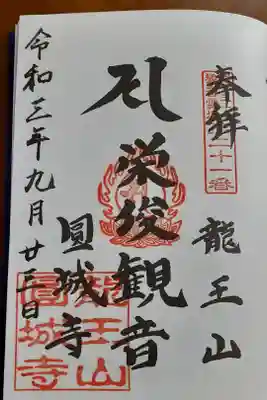 奉拝
二十一番
龍王山
栄俊観音
圓城寺
龍王山
圓城寺
令和三年九月廿三日